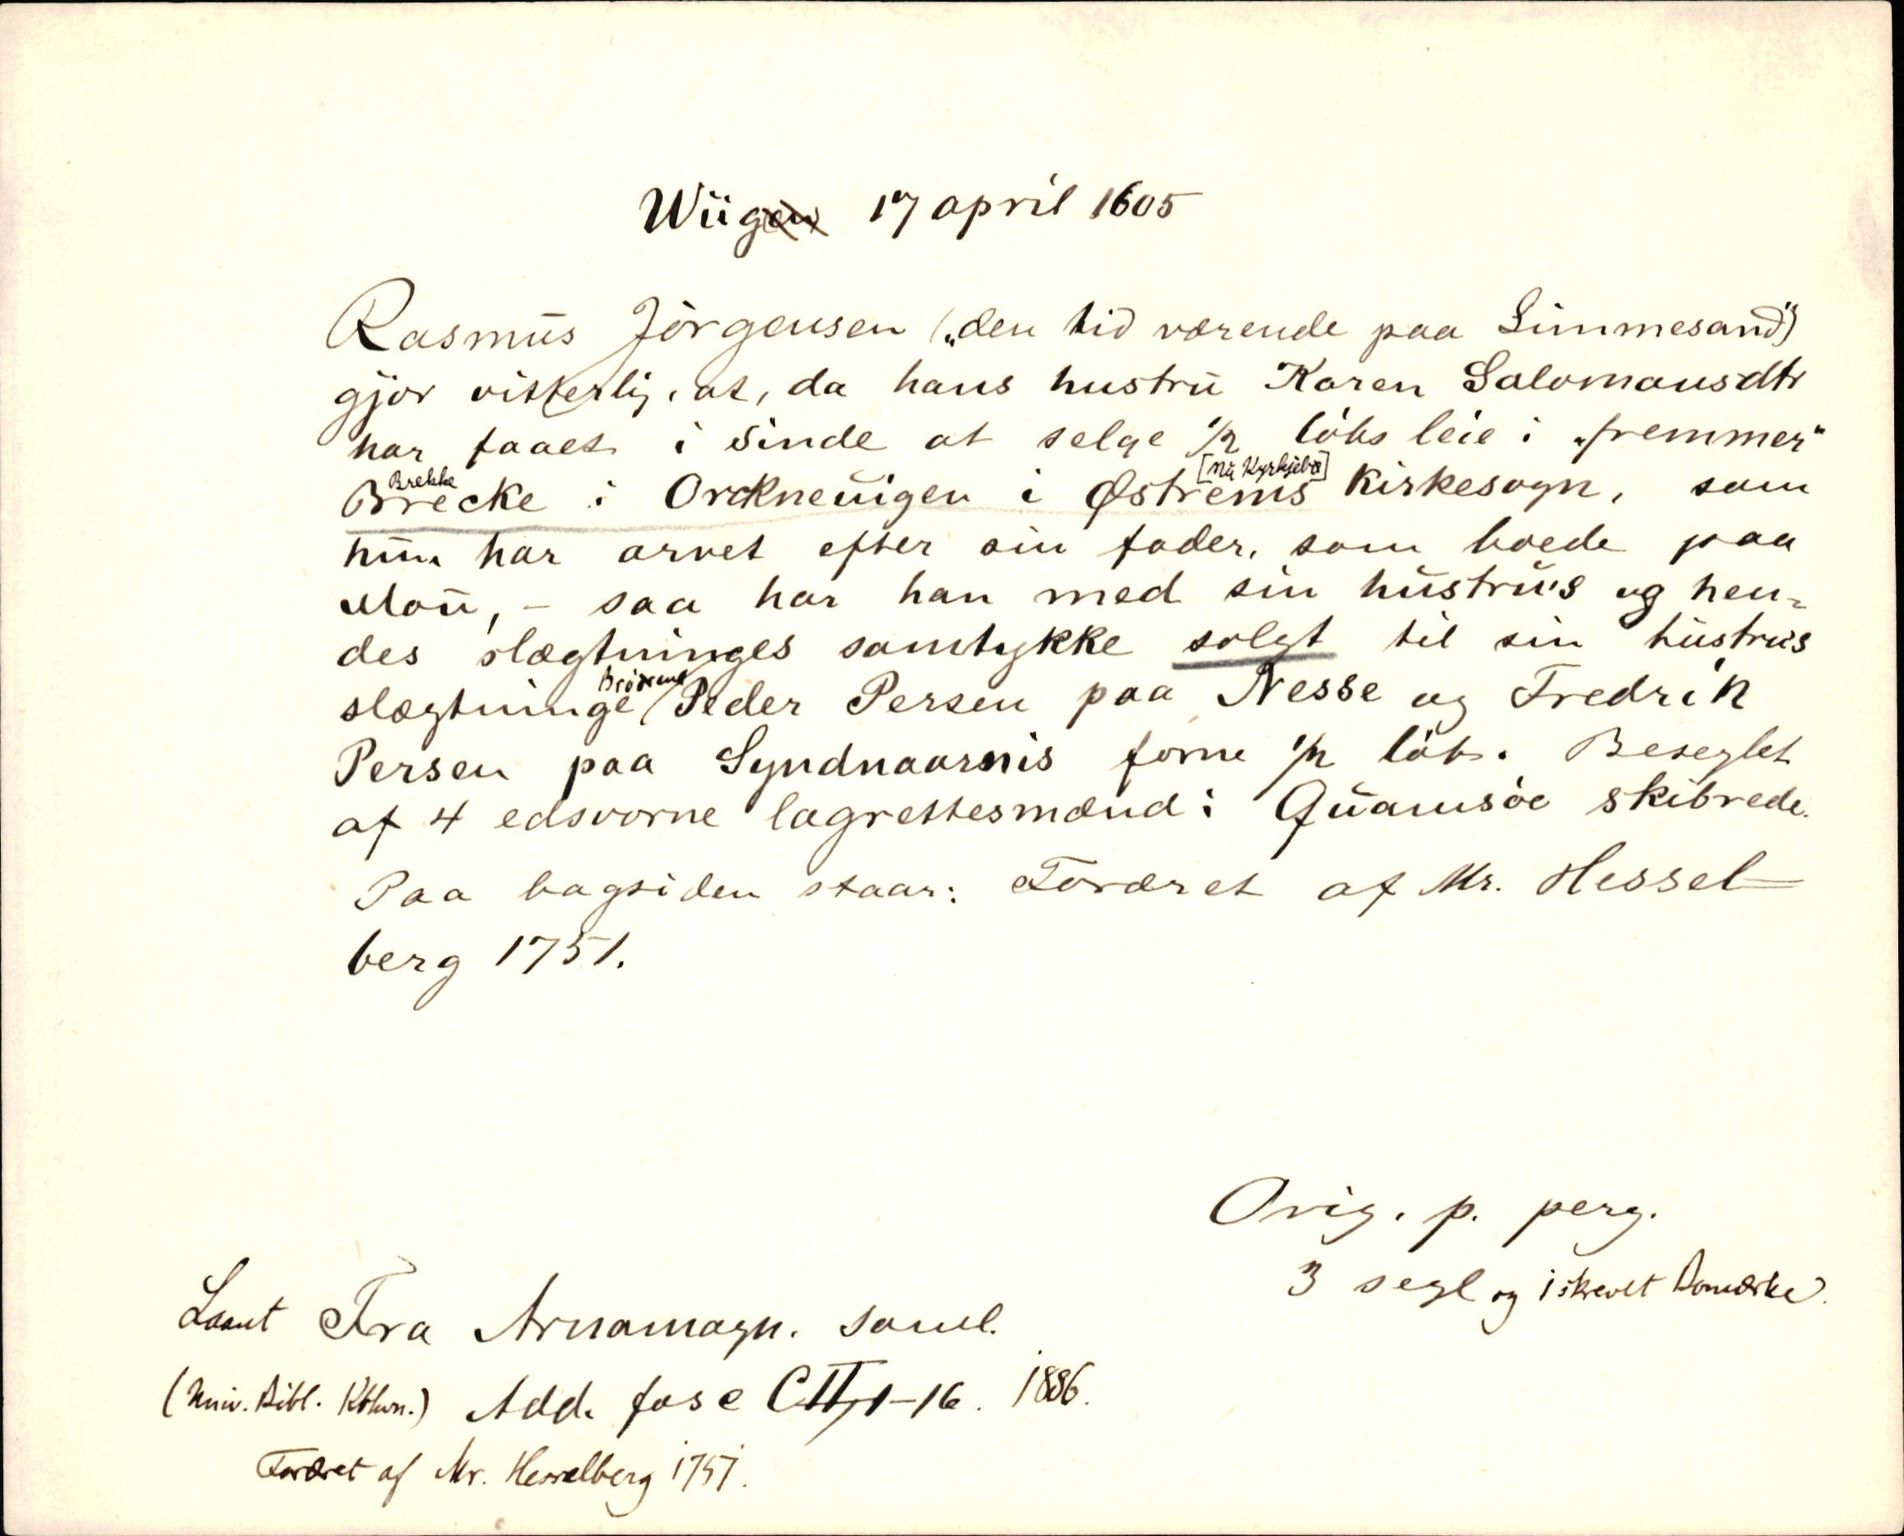 Wiig 17 april 1605
Rasmus Jörgensen („den tid værende paa Simmesand")
gjør vitterlig, at, da hans hustru Karen Salomonsdtr
har faaet i sinde at selge 1/2 löbs leie i „fremmer"
Brekke [nu Kyrkjebø]
Brecke i Orckneuigen i Østrems Kirkesogn, som
hun har arvet efter sin fader, som boede paa
Mou, - saa har han med sin hustru's og hen-
des slægtninges samtykke solgt til sin hustrus
Brödrene
slægtninge Peder Persen paa Nesse og Fredrik
Persen paa Syndnaarnis forne 1/2 löb. Beseglet
af 4 edsvorne lagrettesmænd i Quamsöe skibrede.
Paa bagsiden staar: Foræret af Mr. Hessel-
berg 1751.
Orig. p. perg.
3 segl og 1 skrevet Bomærke.
Laant Fra Arnamagn. saml.
(Univ. Bibl. Kbhvn.) Add. fasc CII, 1-16. 1886.
Foræret af Mr. Hesselberg 1751.